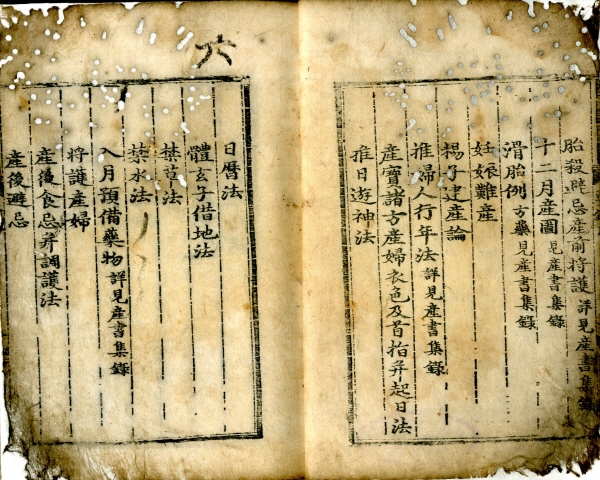 胎殺避忌産前將護 詳見産書集錄
十二月産圖 見産書集錄
滑胎例 方藥見産書集錄
妊娠難産
楊子建産論
推婦人行年法 詳見産書集錄
産寶諸方産婦衣色及首指并起日法
推日遊神法
六
日曆法
體玄子借地法
禁草法
禁水法
入月預備藥物 詳見産書集錄
將護産婦
産後食忌并調護法
産後避忌